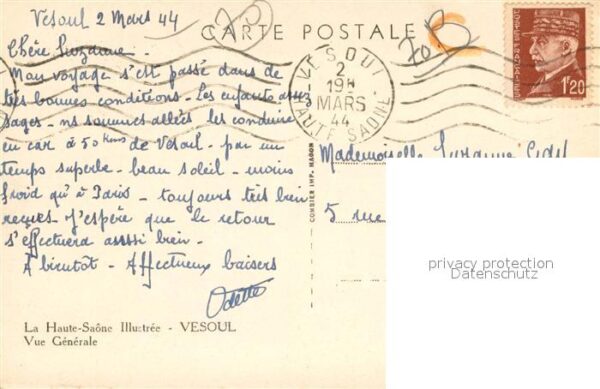 Vesoul 2 Mars 44
CARTE POSTALE
Chère Suzanne -
Mon voyage s'est passé dans de
très bonnes conditions - Les enfants assez
sages - ns sommes allées les conduire
en car à 50 kms de Vesoul - par un
temps superbe - beau soleil - moins
froid qu'à Paris - toujours très bien
reçues - J'espère que le retour
s'effectuera assssi bien -
A bientot - Affectueux baisers
Odette
La Haute-Saône Illustrée - VESOUL
Vue Générale
COMBIER IMP. MACON
VESOUL
2
19H
MARS
44
HAUTE SAÔNE
1F20
Mademoiselle Suzanne
5 rue
privacy protection
Datenschutz